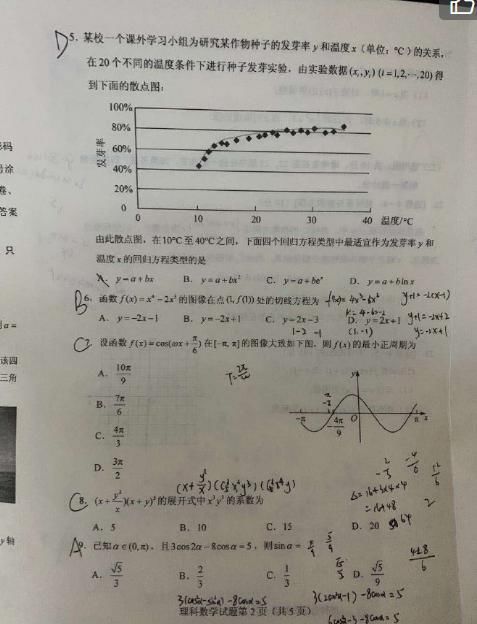 D 5. 某校一个课外学习小组为研究某作物种子的发芽率 y 和温度 x（单位：°C）的关系，
在 20 个不同的温度条件下进行种子发芽实验，由实验数据 (xᵢ, yᵢ) (i = 1,2,⋯,20) 得
到下面的散点图：
100%
80%
60%
40%
20%
0
发芽率
0 10 20 30 40 温度/°C
由此散点图，在 10°C 至 40°C 之间，下面四个回归方程类型中最适宜作为发芽率 y 和
温度 x 的回归方程类型的是
A. y = a + bx B. y = a + bx² C. y = a + beˣ D. y = a + b ln x
B 6. 函数 f(x) = x⁴ − 2x³ 的图像在点 (1, f(1)) 处的切线方程为 f'(x) = 4x³ − 6x² y+1 = -2(x-1)
A. y = −2x − 1 B. y = −2x + 1 C. y = 2x − 3 D. y = 2x + 1 y+1 = -2x+2
k = 4-6 = -2
(1, -1) y = -2x+1
C 7. 设函数 f(x) = cos(ωx + π/6) 在 [−π, π] 的图像大致如下图，则 f(x) 的最小正周期为
A. 10π/9
B. 7π/6
C. 4π/3
D. 3π/2
y
−π −4π/9 O π x
C 8. (x + y²/x)(x + y)⁵ 的展开式中 x³y³ 的系数为
A. 5 B. 10 C. 15 D. 20
A 9. 已知 α ∈ (0, π)，且 3cos2α − 8cosα = 5，则 sinα =
A. √5/3 B. 2/3 C. 1/3 D. √5/9
3(2cos²α-1) -8cosα = 5
理科数学试题第 2 页（共 5 页）
号涂
卷、
答案
只
该四
三角
y 轴